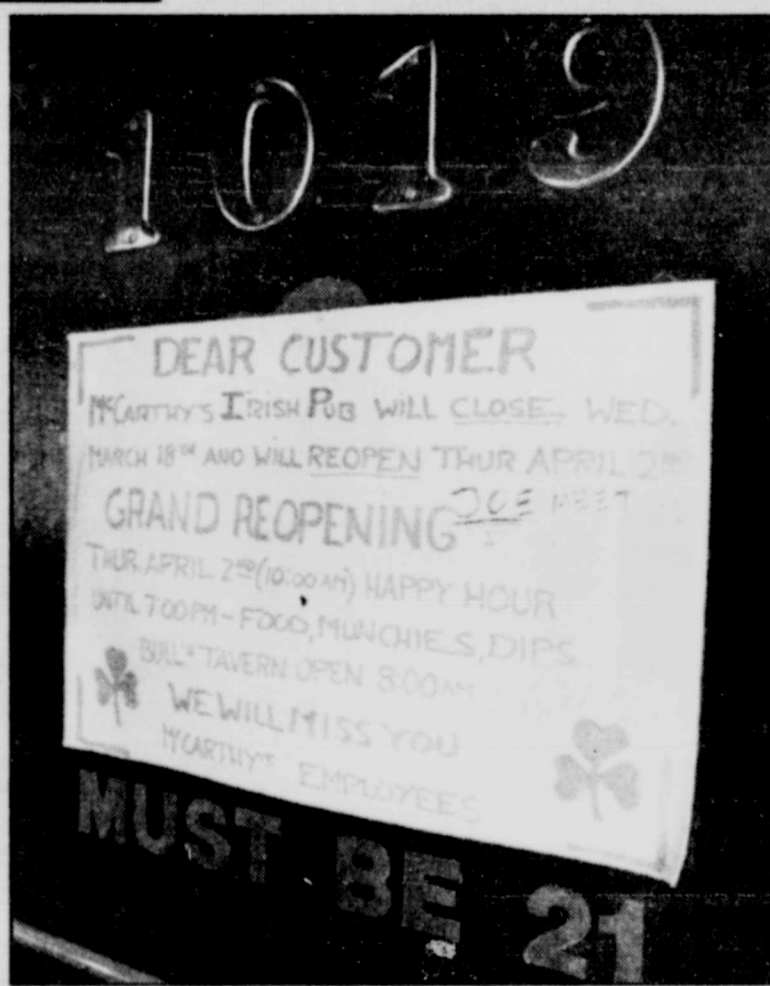 1019
DEAR CUSTOMER
McCARTHY'S IRISH PUB WILL CLOSE WED.
MARCH 18TH AND WILL REOPEN THUR APRIL 2ND
JOE MEET
GRAND REOPENING
THUR. APRIL 2ND (10:00 AM) HAPPY HOUR
UNTIL 7:00 PM - FOOD, MUNCHIES, DIPS
BULL'S TAVERN OPEN 8:00 AM
WE WILL MISS YOU
McCARTHY'S EMPLOYEES
MUST BE 21